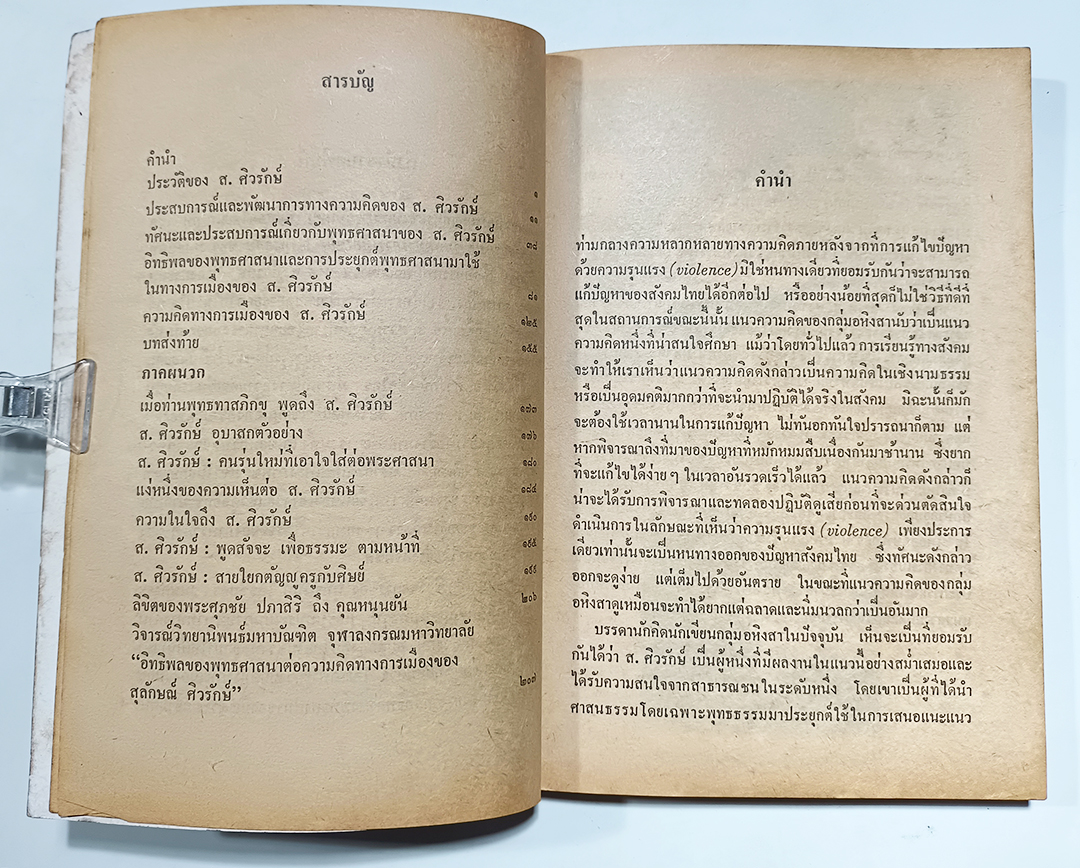 สารบัญ
คำนำ
ประวัติของ ส. ศิวรักษ์ ๑
ประสบการณ์และพัฒนาการทางความคิดของ ส. ศิวรักษ์ ๑๑
ทัศนะและประสบการณ์เกี่ยวกับพุทธศาสนาของ ส. ศิวรักษ์ ๓๘
อิทธิพลของพุทธศาสนาและการประยุกต์พุทธศาสนามาใช้
ในทางการเมืองของ ส. ศิวรักษ์ ๘๑
ความคิดทางการเมืองของ ส. ศิวรักษ์ ๑๒๕
บทส่งท้าย ๑๕๕
ภาคผนวก
เมื่อท่านพุทธทาสภิกขุ พูดถึง ส. ศิวรักษ์ ๑๗๓
ส. ศิวรักษ์ อุบาสกตัวอย่าง ๑๗๖
ส. ศิวรักษ์ : คนรุ่นใหม่ที่เอาใจใส่ต่อพระศาสนา ๑๘๐
แง่หนึ่งของความเห็นต่อ ส. ศิวรักษ์ ๑๘๔
ความในใจถึง ส. ศิวรักษ์ ๑๙๐
ส. ศิวรักษ์ : พูดสัจจะ เพื่อธรรมะ ตามหน้าที่ ๑๙๕
ส. ศิวรักษ์ : สายใยกตัญญูครูกับศิษย์ ๑๙๙
ลิขิตของพระศุภชัย ปภาสิริ ถึง คุณหนุนยัน ๒๐๖
วิจารณ์วิทยานิพนธ์มหาบัณฑิต จุฬาลงกรณมหาวิทยาลัย
“อิทธิพลของพุทธศาสนาต่อความคิดทางการเมืองของ
สุลักษณ์ ศิวรักษ์” ๒๐๗
คำนำ
ท่ามกลางความหลากหลายทางความคิดภายหลังจากที่การแก้ไขปัญหา
ด้วยความรุนแรง (violence) มิใช่หนทางเดียวที่ยอมรับกันว่าจะสามารถ
แก้ปัญหาของสังคมไทยได้อีกต่อไป หรืออย่างน้อยที่สุดก็ไม่ใช่วิธีที่ดีที่
สุดในสถานการณ์ขณะนี้นั้น แนวความคิดของกลุ่มอหิงสานับว่าเป็นแนว
ความคิดหนึ่งที่น่าสนใจศึกษา แม้ว่าโดยทั่วไปแล้ว การเรียนรู้ทางสังคม
จะทำให้เราเห็นว่าแนวความคิดดังกล่าวเป็นความคิดในเชิงนามธรรม
หรือเป็นอุดมคติมากกว่าที่จะนำมาปฏิบัติได้จริงในสังคม มิฉะนั้นก็มัก
จะต้องใช้เวลานานในการแก้ปัญหา ไม่ทันอกทันใจปรารถนาก็ตาม แต่
หากพิจารณาถึงที่มาของปัญหาที่หมักหมมสืบเนื่องกันมาช้านาน ซึ่งยาก
ที่จะแก้ไขได้ง่าย ๆ ในเวลาอันรวดเร็วได้แล้ว แนวความคิดดังกล่าวก็
น่าจะได้รับการพิจารณาและทดลองปฏิบัติดูเสียก่อนที่จะด่วนตัดสินใจ
ดำเนินการในลักษณะที่เห็นว่าความรุนแรง (violence) เพียงประการ
เดียวเท่านั้นจะเป็นหนทางออกของปัญหาสังคมไทย ซึ่งทัศนะดังกล่าว
ออกจะดูง่าย แต่เต็มไปด้วยอันตราย ในขณะที่แนวความคิดของกลุ่ม
อหิงสาดูเหมือนจะทำได้ยากแต่ฉลาดและนิ่มนวลกว่าเป็นอันมาก
บรรดานักคิดนักเขียนกลุ่มอหิงสาในปัจจุบัน เห็นจะเป็นที่ยอมรับ
กันได้ว่า ส. ศิวรักษ์ เป็นผู้หนึ่งที่มีผลงานในแนวนี้อย่างสม่ำเสมอและ
ได้รับความสนใจจากสาธารณชนในระดับหนึ่ง โดยเขาเป็นผู้ที่ได้นำ
ศาสนธรรมโดยเฉพาะพุทธธรรมมาประยุกต์ใช้ในการเสนอแนะแนว